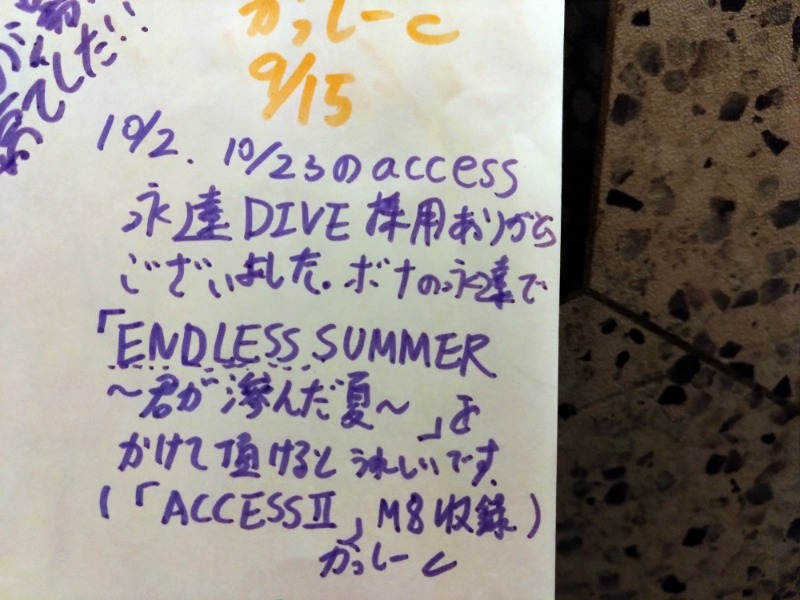 かっしーc
9/15
でした!!
10/2. 10/23のaccess
永遠DIVE 採用ありがとう
ございました。ボナの永遠で
「ENDLESS SUMMER
～君が滲んだ夏～」を
かけて頂けるとうれしいです
(「ACCESSⅡ」M8収録)
かっしーc